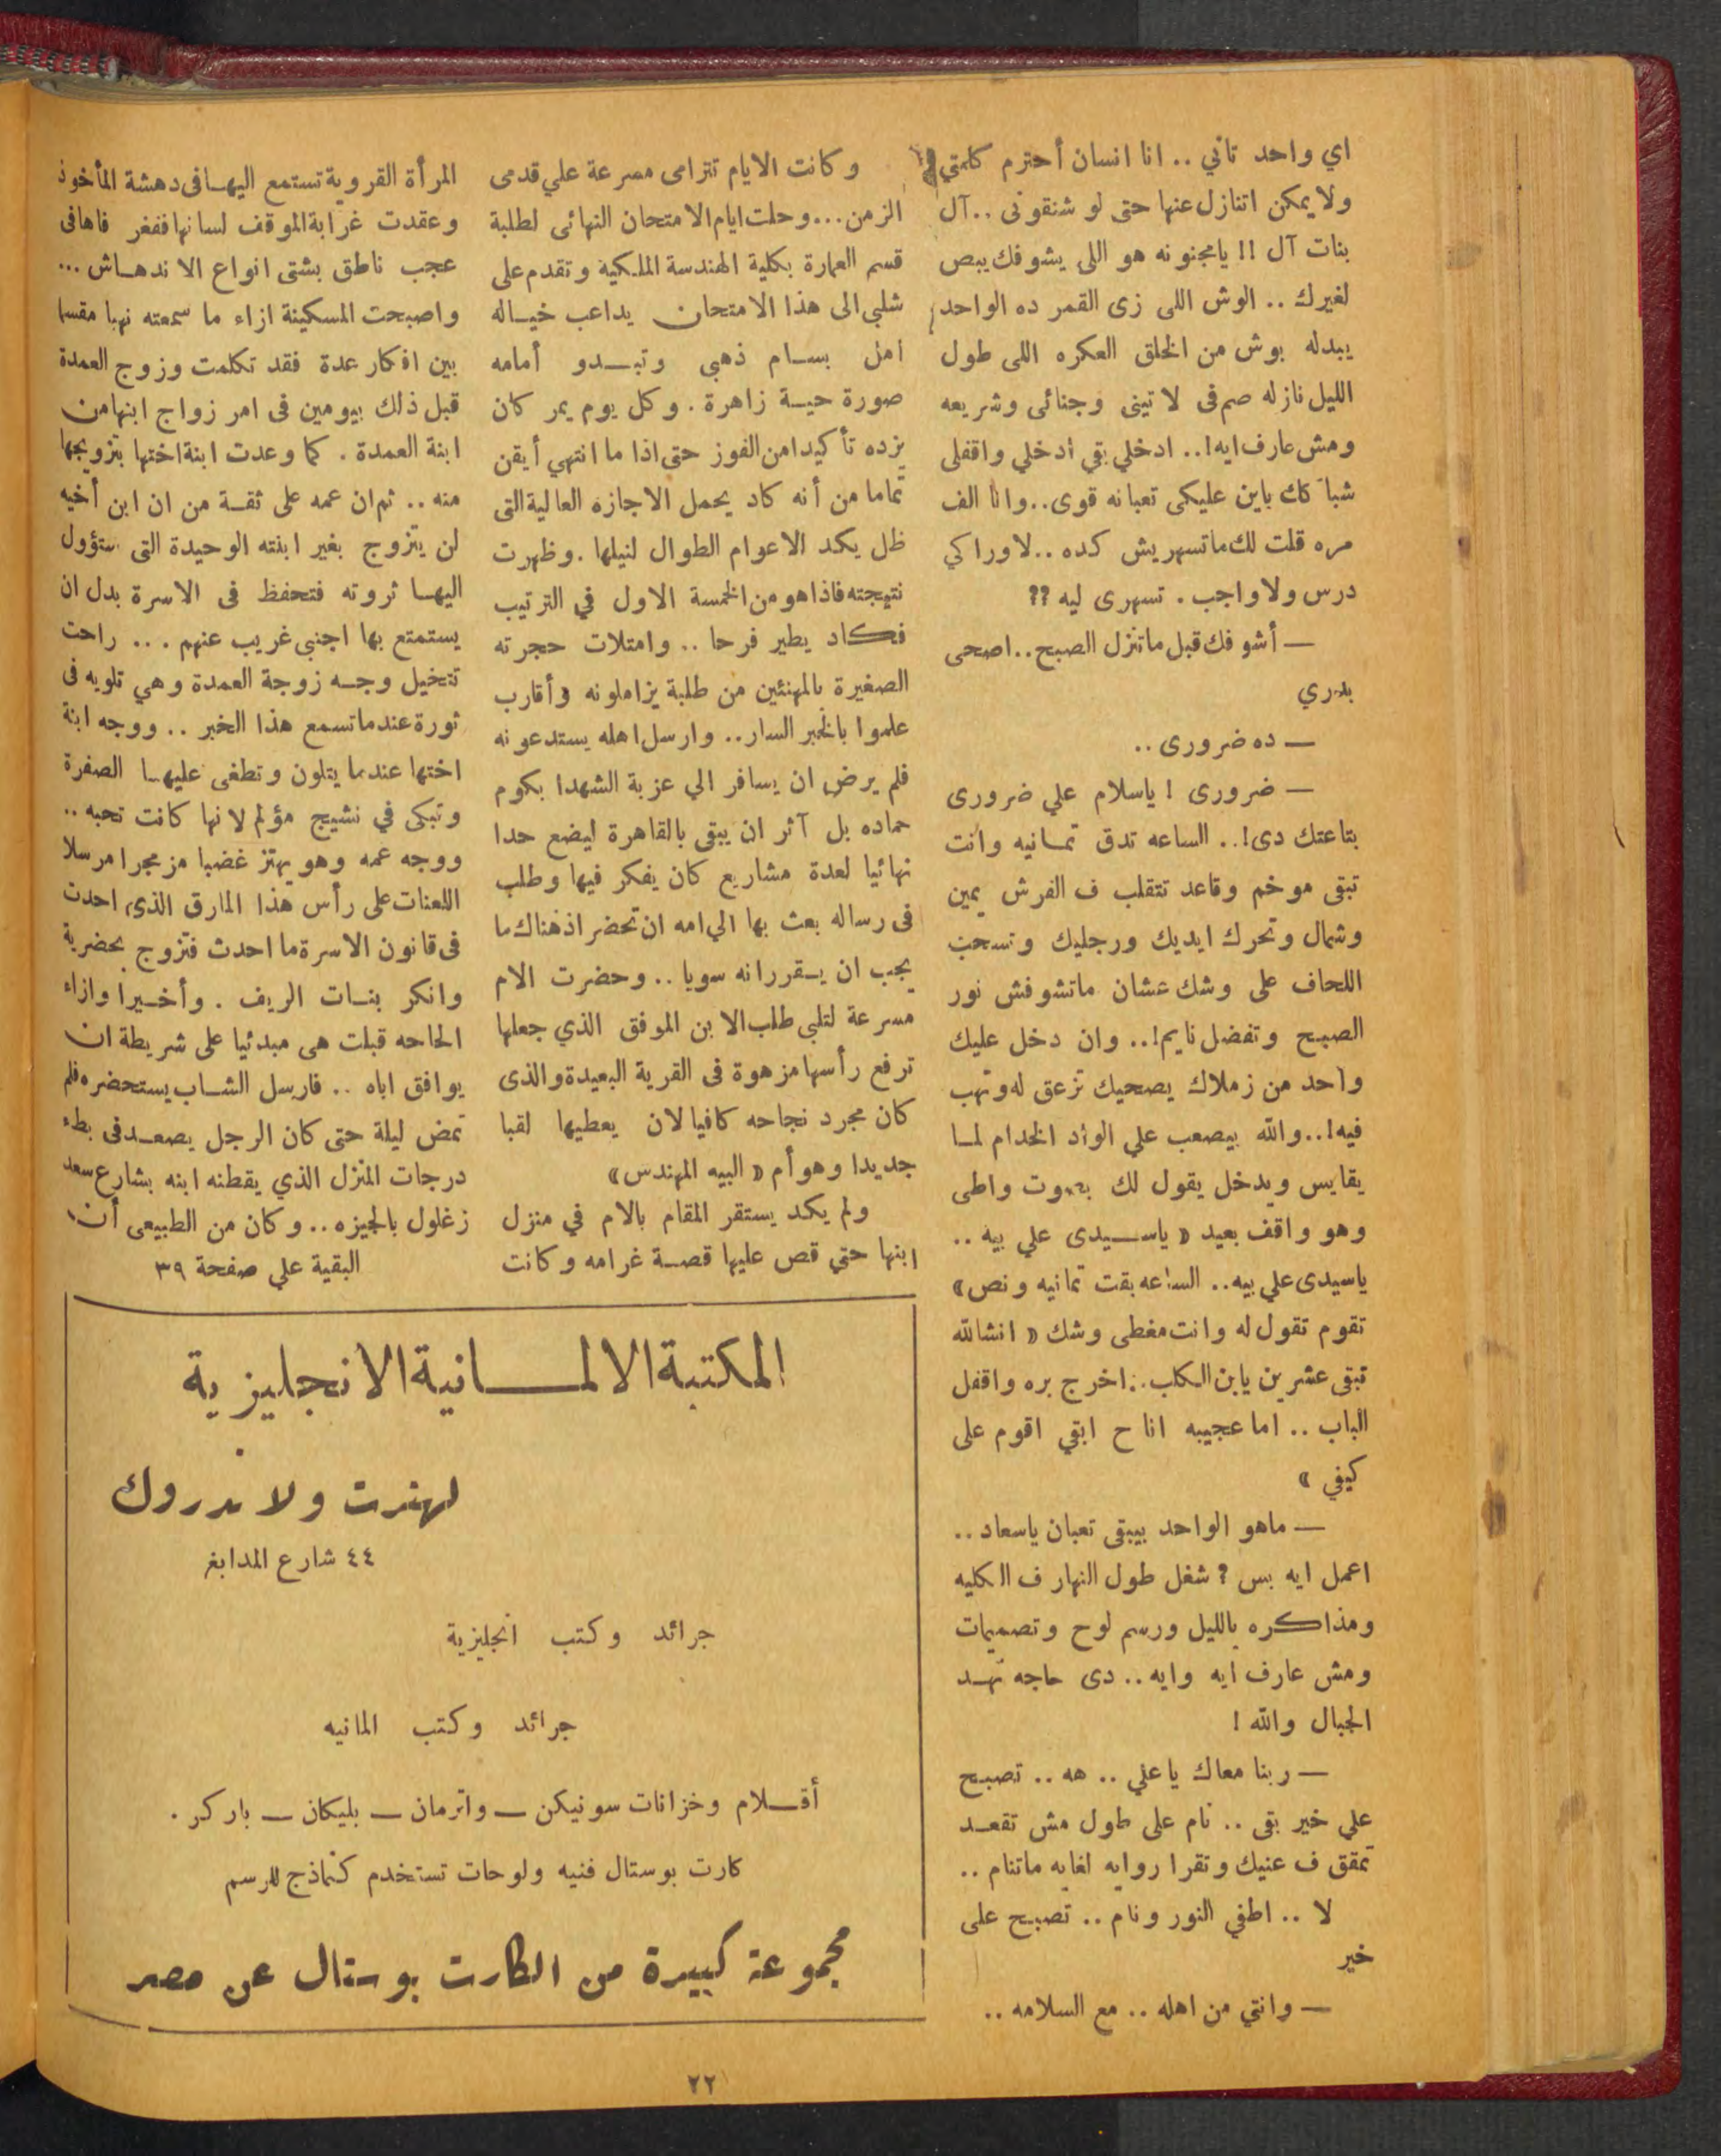 اي واحد تاني .. انا انسان أحترم كلمتي
ولا يمكن اتنازل عنها حتى لو شنقونى .. آل
بنات آل !! يامجنونه هو اللى يشوفك يبص
لغيرك .. الوش اللى زى القمر ده الواحد
يبدله بوش من الخلق العكره اللى طول
الليل نازله صم فى لاتينى وجنائى وشريعه
ومش عارف ايه!.. ادخلي بقي ادخلي واقفلى
شباكك باين عليكى تعبانه قوى .. وانا الف
مره قلت لك ماتسهريش كده .. لاوراكي
درس ولا واجب . تسهرى ليه ??
— أشوفك قبل ماتنزل الصبح .. اصحى
بدري
— ده ضرورى ..
— ضرورى ! ياسلام علي ضرورى
بتاعتك دى!.. الساعه تدق تمانيه وانت
تبقى موخم وقاعد تتقلب ف الفرش يمين
وشمال وتحرك ايديك ورجليك وتسحب
اللحاف على وشك عشان ماتشوفش نور
الصبح وتفضل نايم!.. وان دخل عليك
واحد من زملاك يصحيك تزعق له وتهب
فيه!.. والله بيصعب علي الواد الخدام لما
يقايس ويدخل يقول لك بصوت واطى
وهو واقف بعيد « ياسيدى علي بيه ..
ياسيدى علي بيه .. الساعه بقت تمانيه ونص »
تقوم تقول له وانت مغطى وشك « انشالله
تبقى عشرين يابن الكلب .. اخرج بره واقفل
الباب .. اما عجيبه انا ح ابقي اقوم على
كيفي »
— ماهو الواحد بيبقى تعبان ياسعاد ..
اعمل ايه بس ? شغل طول النهار ف الكليه
ومذاكره بالليل ورسم لوح وتصميمات
ومش عارف ايه وايه .. دى حاجه تهد
الجبال والله !
— ربنا معاك ياعلي .. هه .. تصبح
علي خير بقى .. نام على طول مش تقعد
تمقق ف عنيك وتقرا روايه لغايه ماتنام ..
لا .. اطفي النور ونام .. تصبح على
خير
— وانتي من اهله .. مع السلامه ..
وكانت الايام تترامى مسرعة علي قدمى
الزمن ... وحلت ايام الامتحان النهائى لطلبة
قسم العمارة بكلية الهندسة الملكية وتقدم على
شلبى الى هذا الامتحان يداعب خياله
امل بسام ذهبى وتبدو أمامه
صورة حية زاهرة . وكل يوم يمر كان
يزده تأكيدا من الفوز حتى اذا ما انتهي أيقن
تماما من أنه كاد يحمل الاجازه العالية التى
ظل يكد الاعوام الطوال لنيلها . وظهرت
نتيجته فاذا هو من الخمسة الاول في الترتيب
فكاد يطير فرحا .. وامتلات حجرته
الصغيرة بالمهنئين من طلبة يزاملونه وأقارب
علموا بالخبر السار .. وارسل اهله يستدعونه
فلم يرض ان يسافر الي عزبة الشهدا بكوم
حماده بل آثر ان يبقى بالقاهرة ليضع حدا
نهائيا لعدة مشاريع كان يفكر فيها وطلب
فى رساله بعث بها الي امه ان تحضر اذ هناك ما
يجب ان يقررانه سويا .. وحضرت الام
مسرعة لتلبى طلب الابن الموفق الذي جعلها
ترفع رأسها مزهوة فى القرية البعيدة والذى
كان مجرد نجاحه كافيا لان يعطيها لقبا
جديدا وهو أم « البيه المهندس »
ولم يكد يستقر المقام بالام في منزل
ابنها حتي قص عليها قصة غرامه وكانت
المرأة القروية تستمع اليها فى دهشة المأخوذ
وعقدت غرابة الموقف لسانها ففغر فاها فى
عجب ناطق بشتى انواع الاندهاش ...
واصبحت المسكينة ازاء ما سمعته نهبا مقسما
بين افكار عدة فقد تكلمت وزوج العمدة
قبل ذلك بيومين فى امر زواج ابنها من
ابنة العمدة . كما وعدت ابنة اختها بتزويجها
منه .. ثم ان عمه على ثقة من ان ابن أخيه
لن يتزوج بغير ابنته الوحيدة التى ستؤول
اليها ثروته فتحفظ فى الاسرة بدل ان
يستمتع بها اجنبى غريب عنهم ... راحت
تتخيل وجه زوجة العمدة وهي تلويه فى
ثورة عندما تسمع هذا الخبر .. ووجه ابنة
اختها عندما يتلون وتطغى عليها الصفرة
وتبكى في نشيج مؤلم لانها كانت تحبه ..
ووجه عمه وهو يهتز غضبا مزمجرا مرسلا
اللعنات على رأس هذا المارق الذى احدث
فى قانون الاسرة ما احدث فتزوج بحضرية
وانكر بنات الريف . وأخيرا وازاء
الحاحه قبلت هى مبدئيا على شريطة ان
يوافق اباه .. فارسل الشاب يستحضره فلم
تمض ليلة حتى كان الرجل يصعد فى بطء
درجات المنزل الذي يقطنه ابنه بشارع سعد
زغلول بالجيزه .. وكان من الطبيعى أن
البقية علي صفحة ٣٩
المكتبة الالمانية الانجليزية
لهنرت ولاندروك
٤٤ شارع المدابغ
جرائد وكتب انجليزية
جرائد وكتب المانيه
أقلام وخزانات سونيكن — واترمان — بليكان — باركر .
كارت بوستال فنيه ولوحات تستخدم كنماذج للرسم
مجموعة كبيرة من الكارت بوستال عن مصر
٢٢